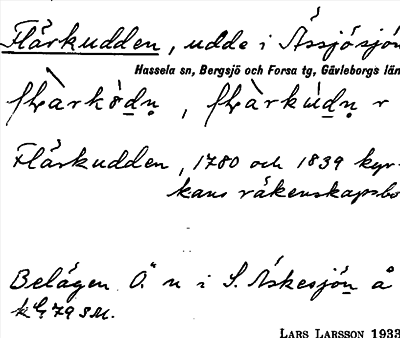 Flärkudden, udde i Ässjösjön
Hassela sn, Bergsjö och Forsa tg, Gävleborgs län
Flärkudden, 1780 och 1839 kyr-
kans räkenskapsbo
Belägen Ö. n i S. Äskesjön å
k G 79 SM.
LARS LARSSON 1933